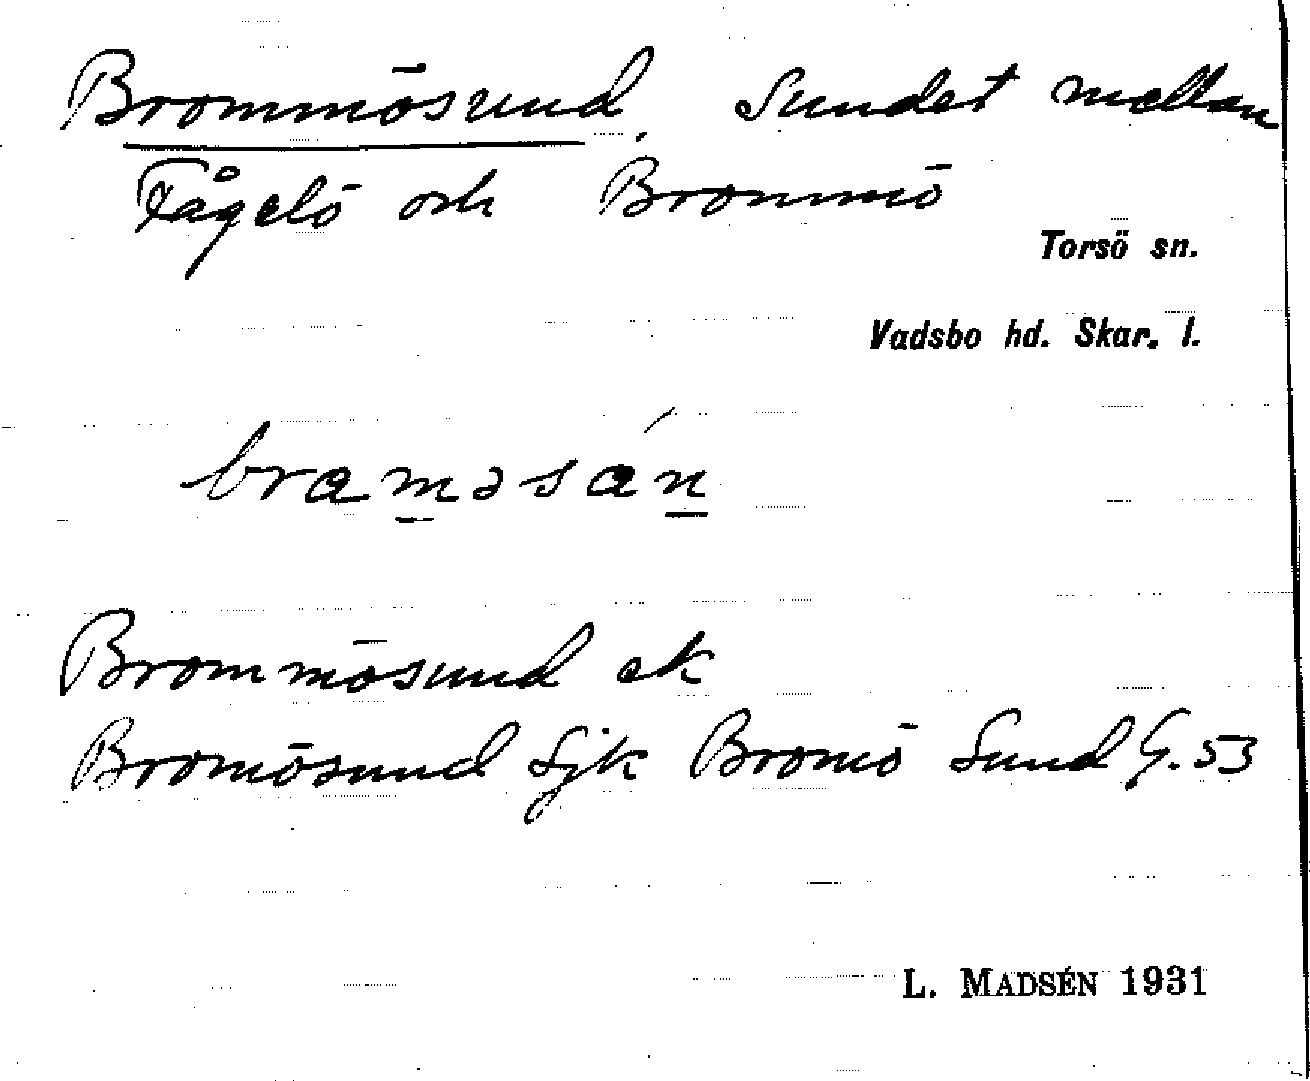 Brommösund. Sundet mellan
Fågelö och Brommö
Torsö sn.
Vadsbo hd. Skar. l.
braməsán
Brommösund ek
Bromösund Sjk Bromö Sund G. 53
L. MADSÉN 1931